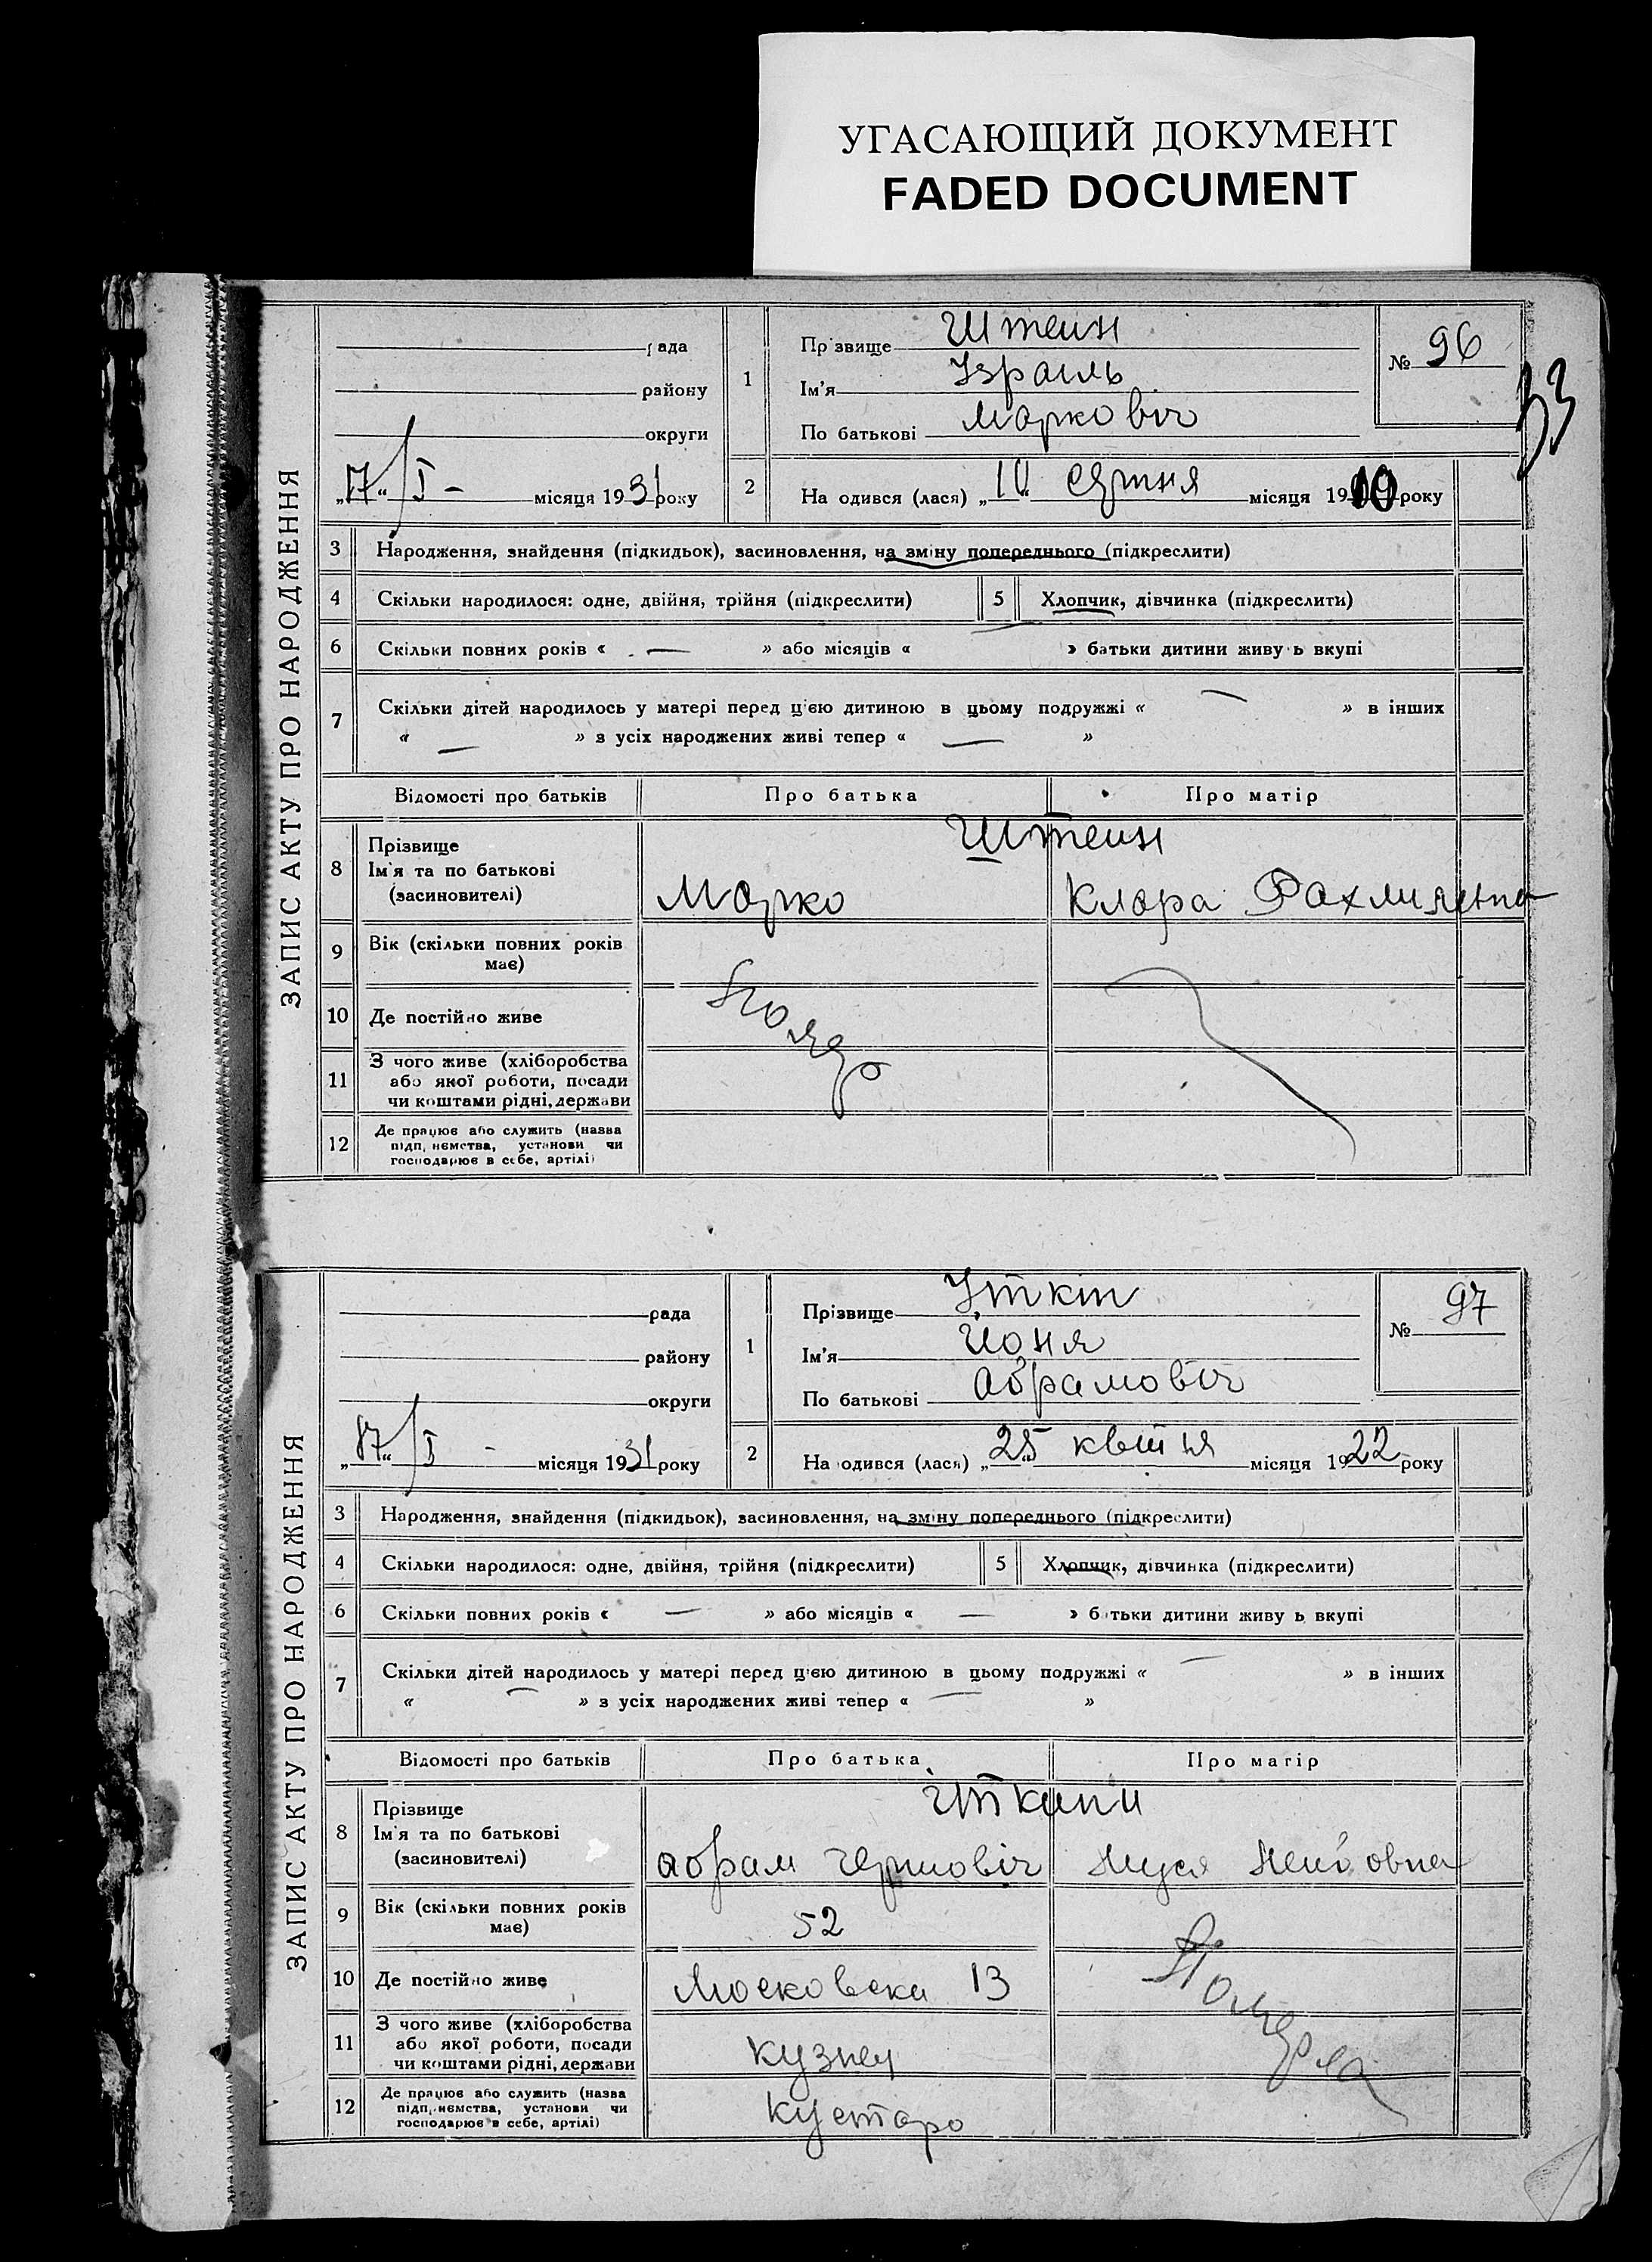 УГАСАЮЩИЙ ДОКУМЕНТ
FADED DOCUMENT
33
ЗАПИС АКТУ ПРО НАРОДЖЕННЯ
рада
району
округи
„17“ I - місяця 1931 року
1
Прізвище Штеин
Ім'я Ізраиль
По батькові Маркович
№ 96
2
На одився (лася) „10“ серпня місяця 1910 року
3 Народження, знайдення (підкидьок), засиновлення, на зміну попереднього (підкреслити)
4 Скільки народилося: одне, двійня, трійня (підкреслити) 5 Хлопчик, дівчинка (підкреслити)
6 Скільки повних років « — » або місяців « — » батьки дитини живу ь вкупі
7 Скільки дітей народилось у матері перед цією дитиною в цьому подружжі « — » в інших
« — » з усіх народжених живі тепер « — »
Відомості про батьків Про батька Про матір
Штеин
8 Прізвище
Ім'я та по батькові
(засиновителі)
Марко Клара Рахмияевна
9 Вік (скільки повних років
має)
10 Де постійно живе
Помер
11 З чого живе (хліборобства
або якої роботи, посади
чи коштами рідні, держави
12 Де працює або служить (назва
підп, иємства, установи чи
господарює в себе, артілі)
ЗАПИС АКТУ ПРО НАРОДЖЕННЯ
рада
району
округи
„17“ I - місяця 1931 року
1
Прізвище Іткін
Ім'я Йоня
По батькові Абрамовіч
№ 97
2
На одився (лася) „25“ квітня місяця 1922 року
3 Народження, знайдення (підкидьок), засиновлення, на зміну попереднього (підкреслити)
4 Скільки народилося: одне, двійня, трійня (підкреслити) 5 Хлопчик, дівчинка (підкреслити)
6 Скільки повних років « — » або місяців « — » б тьки дитини живу ь вкупі
7 Скільки дітей народилось у матері перед цією дитиною в цьому подружжі « — » в інших
« — » з усіх народжених живі тепер « — »
Відомості про батьків Про батька Про матір
Іткини
8 Прізвище
Ім'я та по батькові
(засиновителі)
Абрам Гершовіч Нуся
9 Вік (скільки повних років
має)
52
10 Де постійно живе
Московска 13
Померла
11 З чого живе (хліборобства
або якої роботи, посади
чи коштами рідні, держави
кузнец
12 Де працює або служить (назва
підп, иємства, установи чи
господарює в себе, артілі)
кустарь